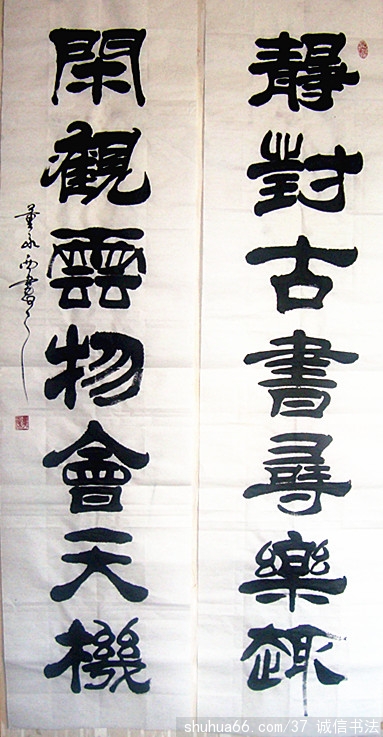 靜對古書尋樂趣
閑觀雲物會天機
董永書
shuhua66.com/37 诚信书法